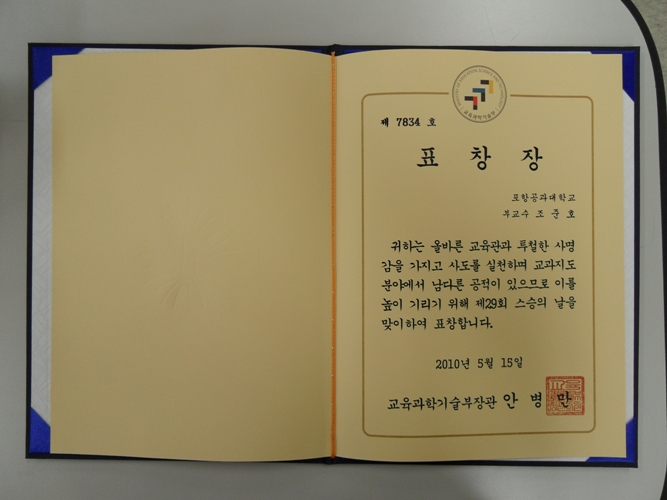 교육과학기술부
제 7834 호
표 창 장
포항공과대학교
부교수 조 준 호
귀하는 올바른 교육관과 투철한 사명
감을 가지고 사도를 실천하며 교과지도
분야에서 남다른 공적이 있으므로 이를
높이 기리기 위해 제29회 스승의 날을
맞이하여 표창합니다.
2010년 5월 15일
교육과학기술부장관 안 병 만